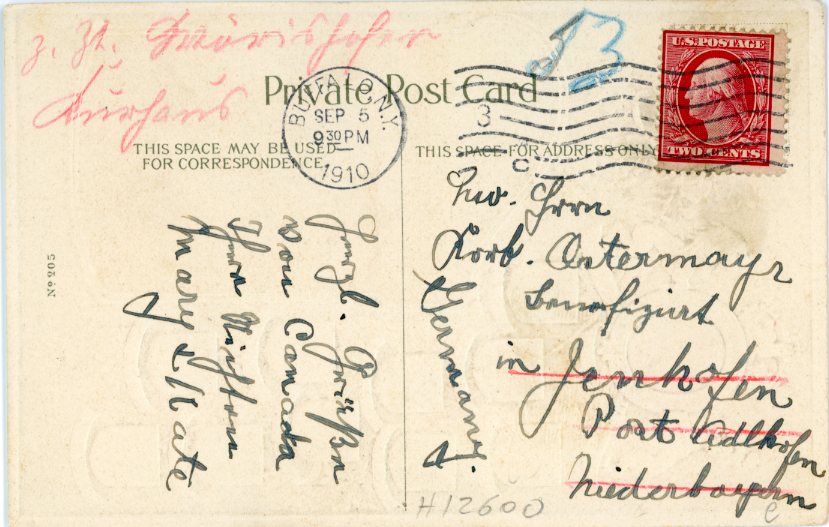 z. Zt. Wörishofen
Kurhaus
Private Post Card
BUFFALO, N.Y.
SEP 5
9 30 PM
1910
3
C
U.S. POSTAGE
TWO CENTS
THIS SPACE MAY BE USED
FOR CORRESPONDENCE
THIS SPACE FOR ADDRESS ONLY
Herzl. Grüße
von Canada
Ihre Nichten
Mary & Kate
Nº 205
Herrn
Korb. Ostermayr
Benefiziat
in Jenkofen
Post Adlkofen
Niederbayern
Germany.
H12600
e